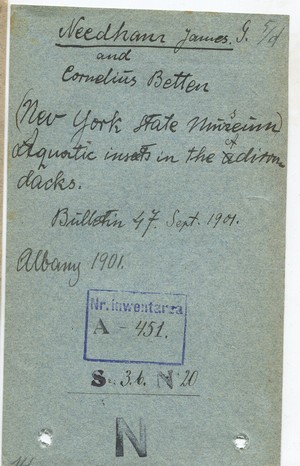 Needham James. G.
and
Cornelius Betten
(New York State Museum)
Aquatic insects in the Adiron
dacks.
Bulletin 47. Sept. 1901.
Albany 1901.
Nr. inwentarza
A - 451.
S. 3.b. N 20
N